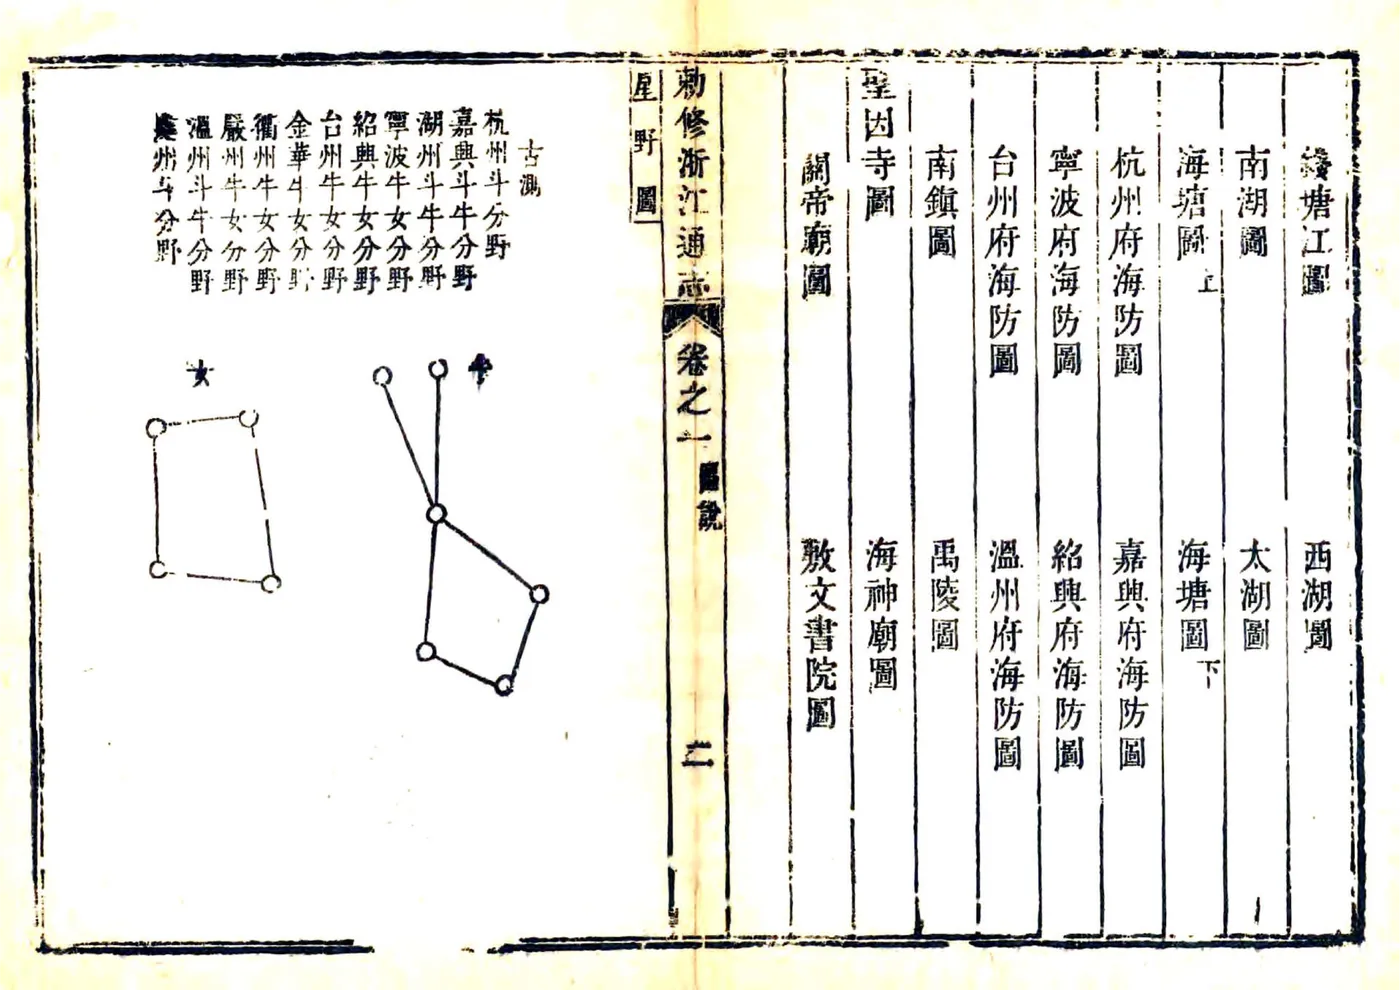 錢塘江圖 西湖圖
南湖圖 太湖圖
海塘圖上 海塘圖下
杭州府海防圖 嘉興府海防圖
寧波府海防圖 紹興府海防圖
台州府海防圖 溫州府海防圖
南鎮圖 禹陵圖
聖因寺圖 海神廟圖
關帝廟圖 敷文書院圖
勅修浙江通志 卷之一 圖說 二
星野圖
古測
杭州斗分野
嘉興斗牛分野
湖州斗牛分野
寧波牛女分野
紹興牛女分野
台州牛女分野
金華牛女分野
衢州牛女分野
嚴州牛女分野
溫州斗牛分野
處州斗分野
牛
女